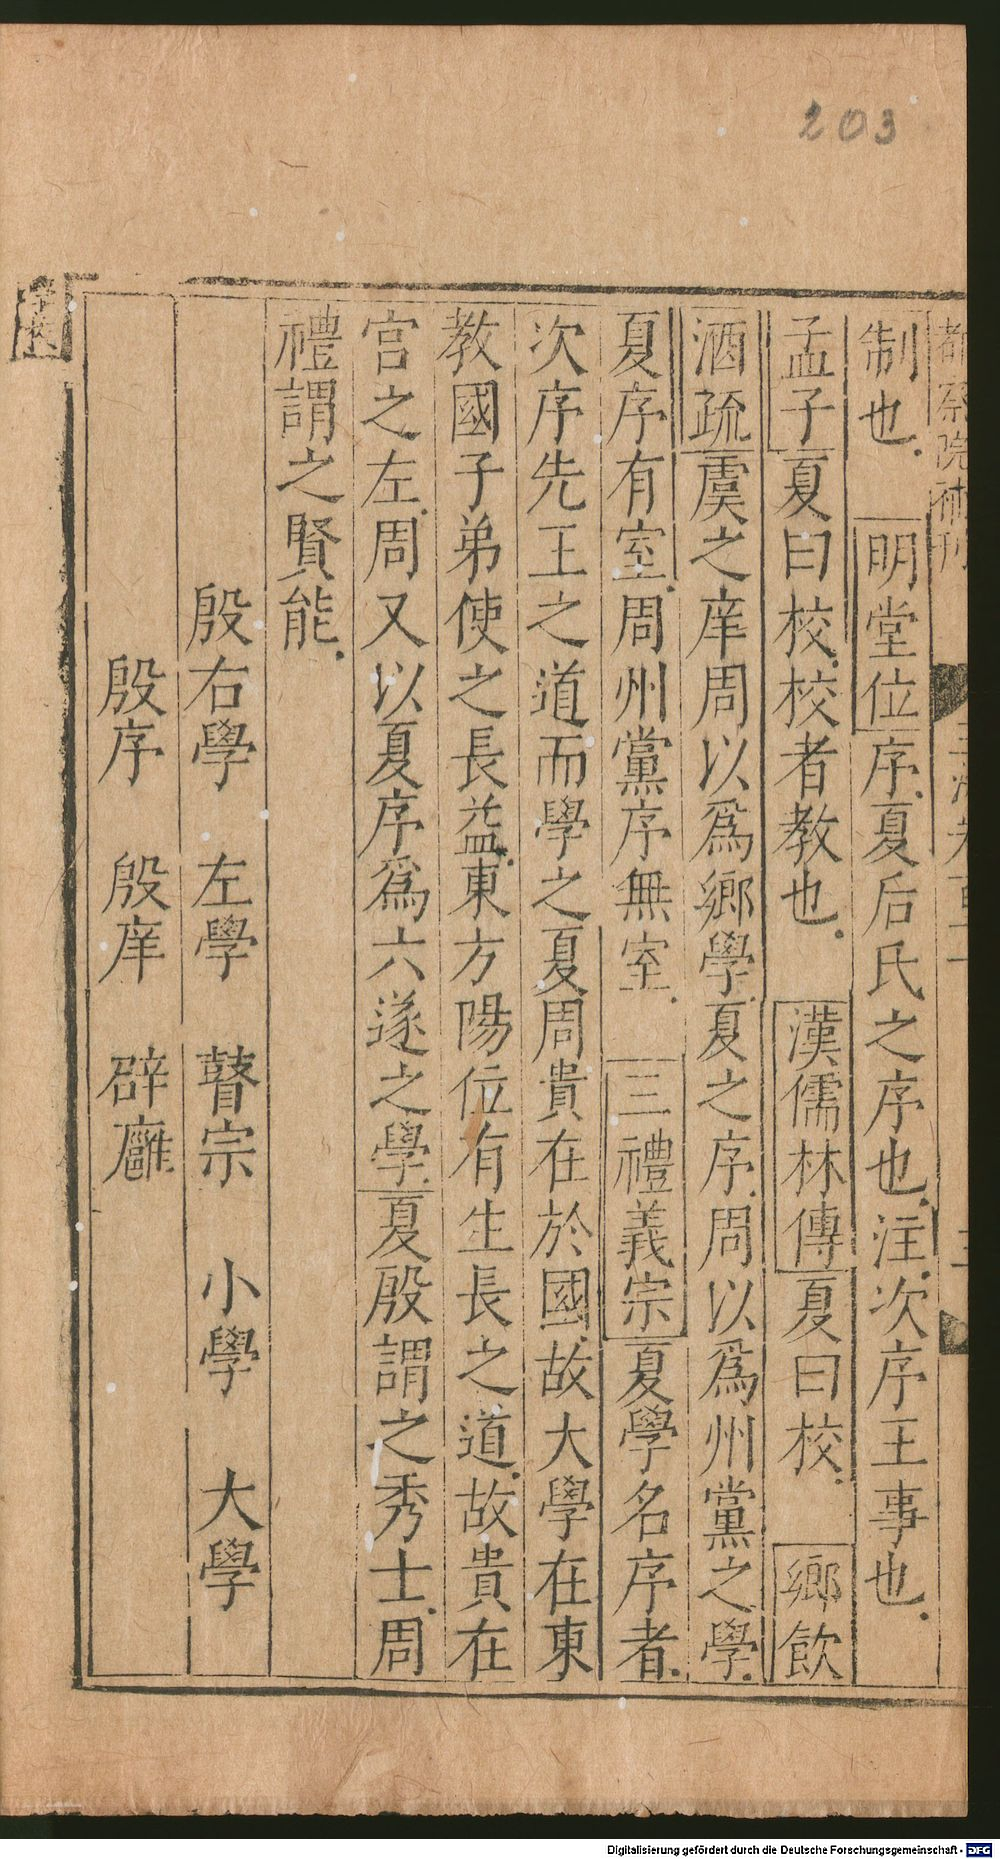 203
都察院補刊
制也 明堂位序夏后氏之序也注次序王事也
孟子夏曰校校者教也 漢儒林傳夏曰校 鄉飲
酒疏虞之庠周以爲鄉學夏之序周以爲州黨之學
夏序有室周州黨序無室 三禮義宗夏學名序者
次序先王之道而學之夏周貴在於國故大學在東
教國子弟使之長益東方陽位有生長之道故貴在
宮之左周又以夏序爲六遂之學夏殷謂之秀士周
禮謂之賢能
殷右學 左學 瞽宗 小學 大學
殷序 殷庠 辟廱
Digitalisierung gefördert durch die Deutsche Forschungsgemeinschaft - DFG